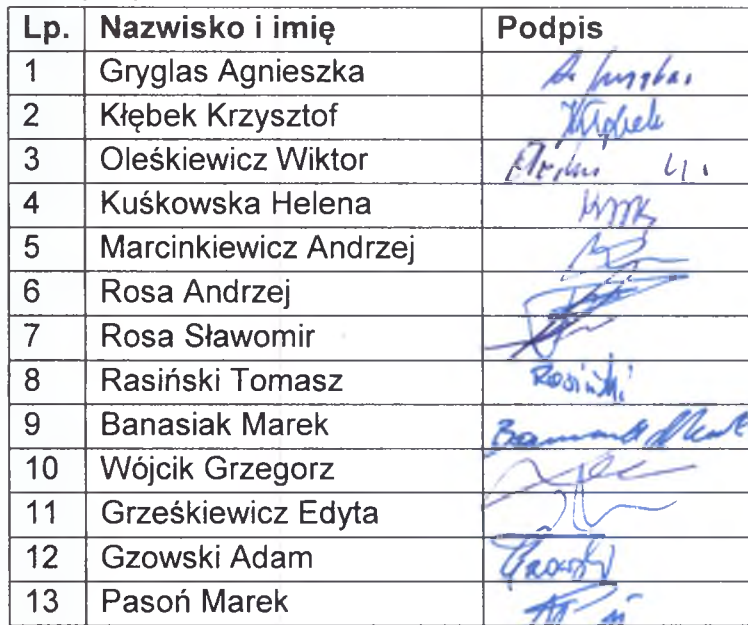 Lp. Nazwisko i imię Podpis
1 Gryglas Agnieszka
2 Kłębek Krzysztof Kłębek
3 Oleśkiewicz Wiktor
4 Kuśkowska Helena
5 Marcinkiewicz Andrzej
6 Rosa Andrzej
7 Rosa Sławomir
8 Rasiński Tomasz Rasiński
9 Banasiak Marek
10 Wójcik Grzegorz
11 Grześkiewicz Edyta
12 Gzowski Adam Gzowski
13 Pasoń Marek